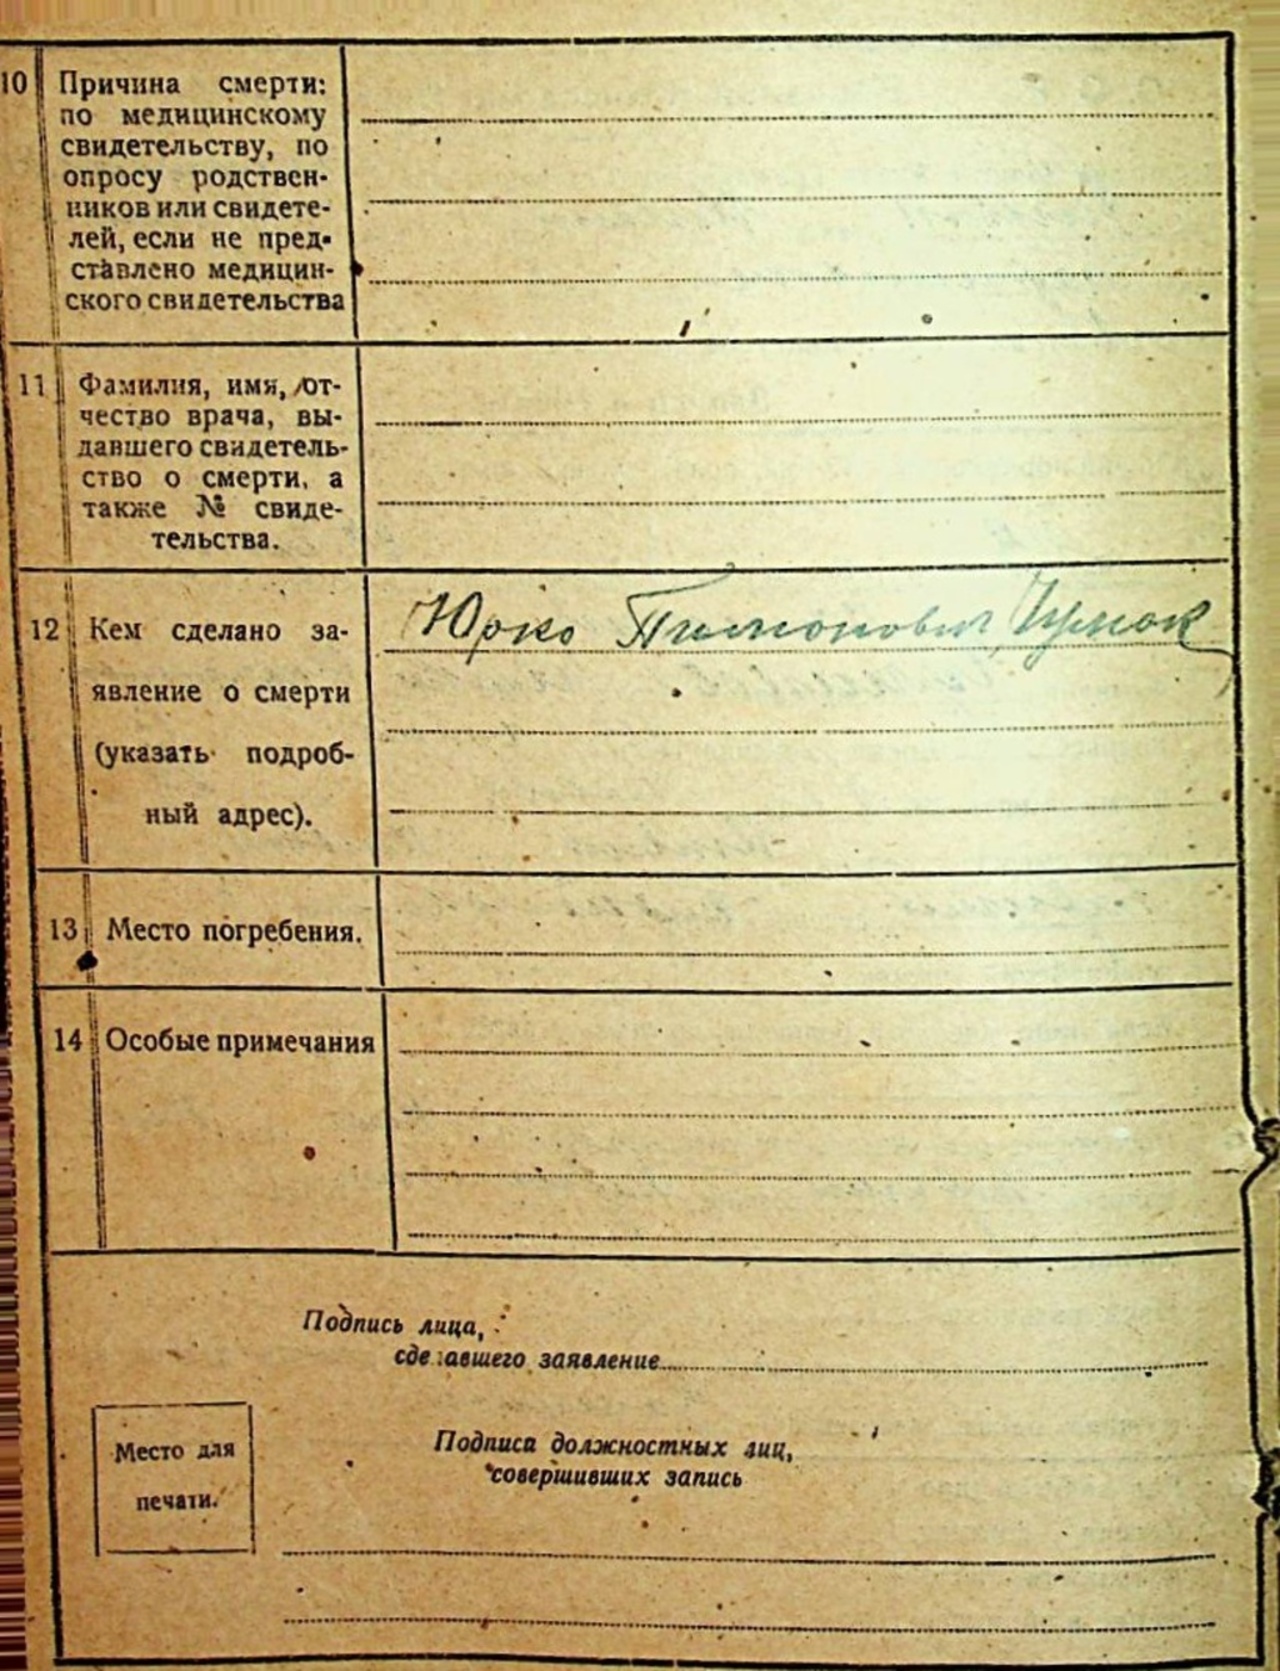 10 Причина смерти:
по медицинскому
свидетельству, по
опросу родствен-
ников или свидете-
лей, если не пред-
ставлено медицин-
ского свидетельства
11 Фамилия, имя, от-
чество врача, вы-
давшего свидетель-
ство о смерти, а
также № свиде-
тельства.
12 Кем сделано за-
явление о смерти
(указать подроб-
ный адрес).
Юрко
13 Место погребения.
14 Особые примечания
Подпись лица,
сделавшего заявление
Место для
печати.
Подписи должностных лиц,
совершивших запись